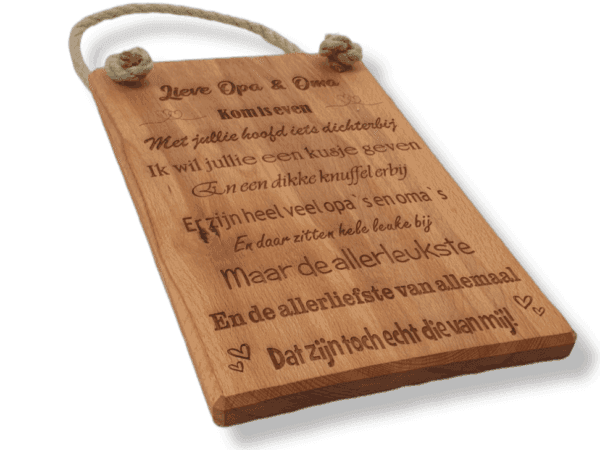 Lieve Opa & Oma
Kom is even
Met jullie hoofd iets dichterbij
Ik wil jullie een kusje geven
En een dikke knuffel erbij
Er zijn heel veel opa`s en oma`s
En daar zitten hele leuke bij
Maar de allerleukste
En de allerliefste van allemaal
Dat zijn toch echt die van mij!